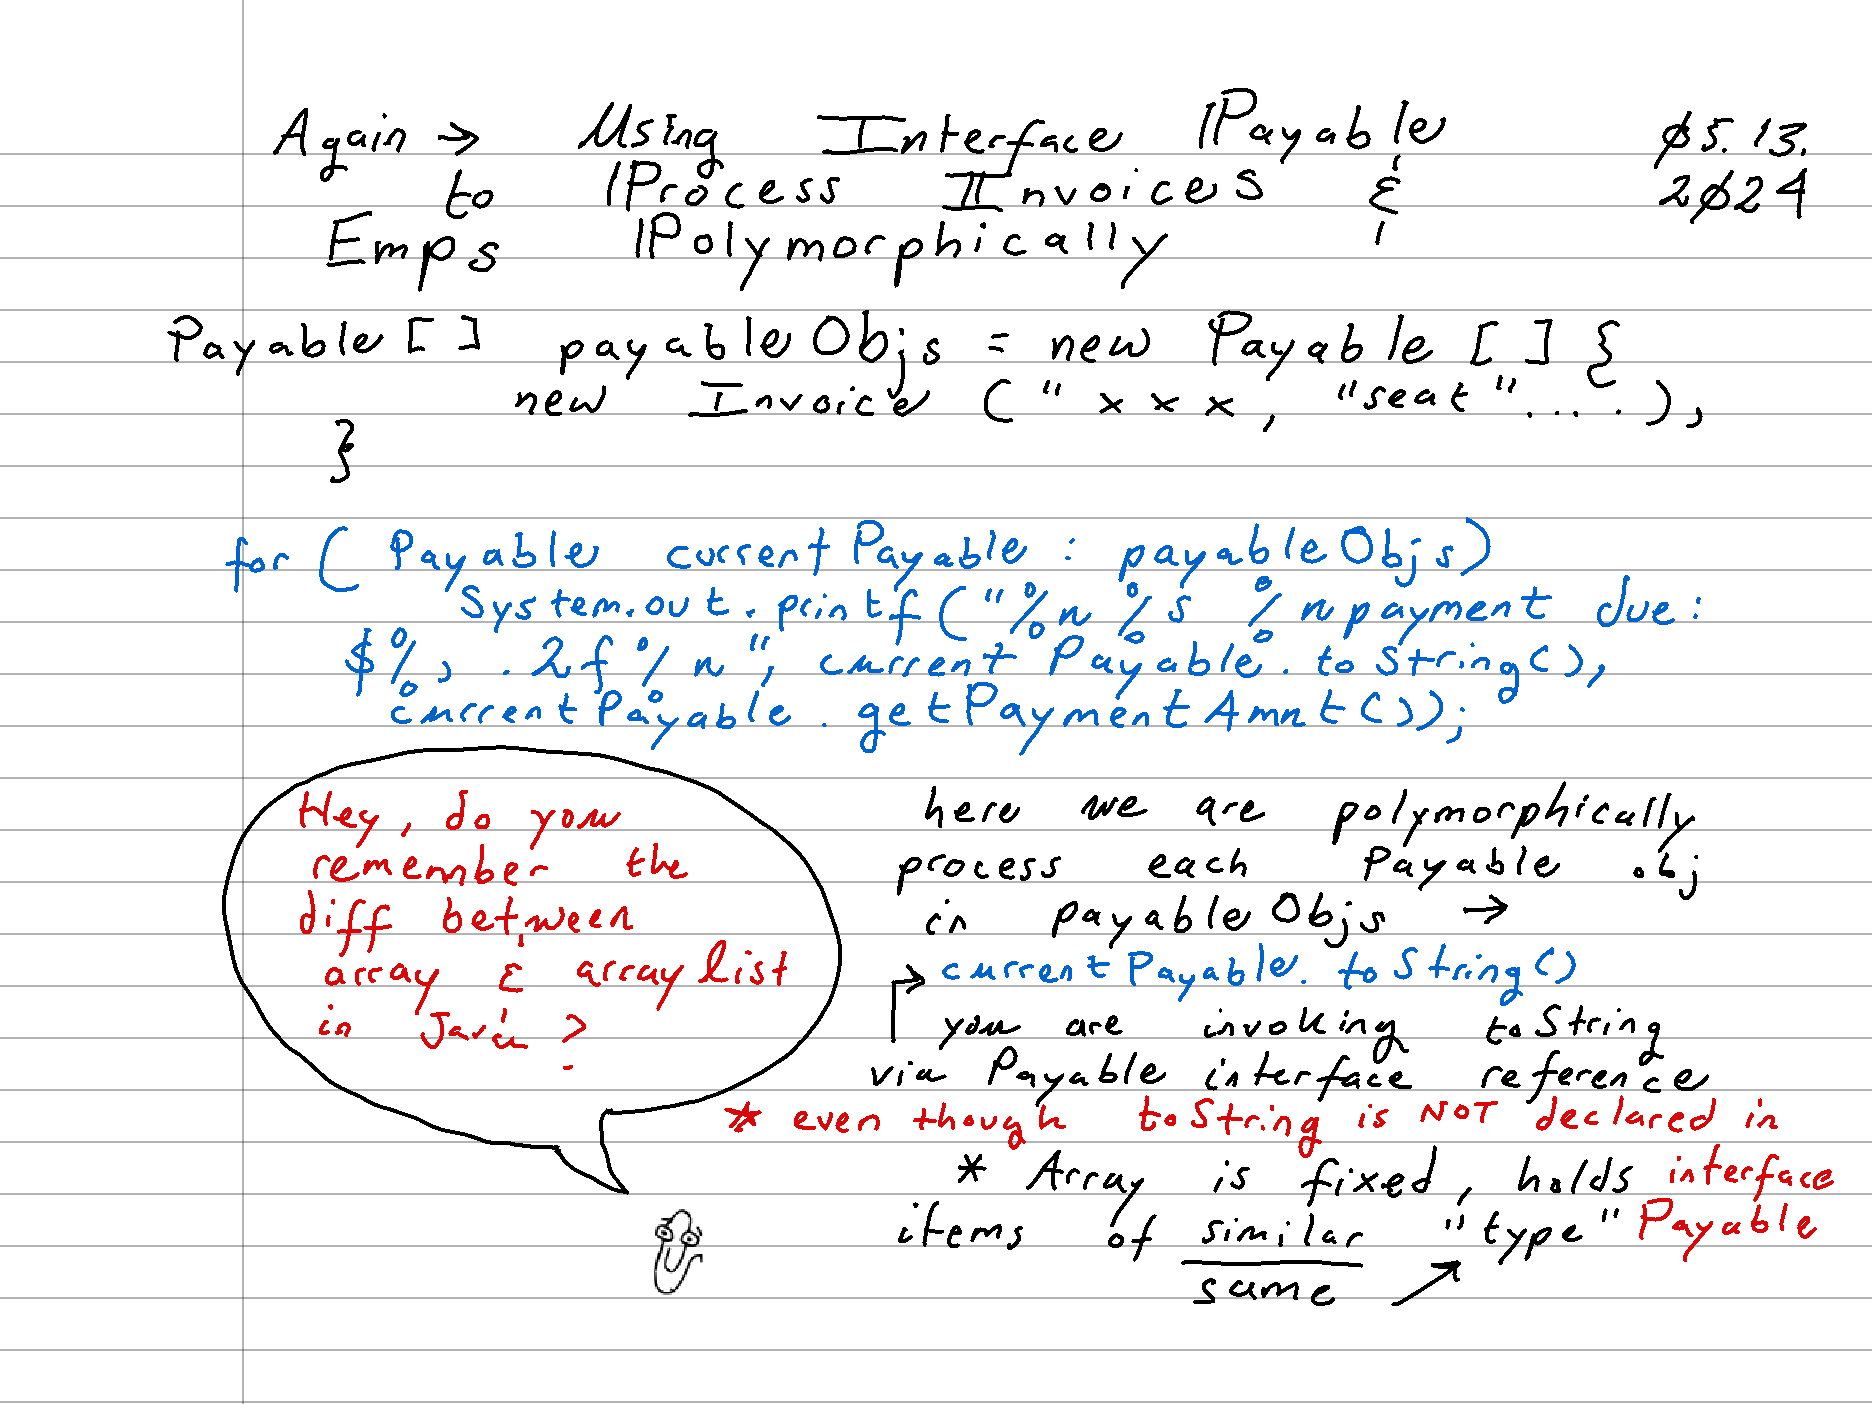 Again → Using Interface Payable 05.13.
to Process Invoices & 2024
Emps Polymorphically
Payable [ ] payableObjs = new Payable [ ] {
new Invoice ( " x x x , "seat" . . . . ) ,
}
for ( Payable currentPayable : payableObjs)
System.out.printf ( "%n %s %n payment due:
$%, .2f %n", currentPayable.toString(),
currentPayable.getPaymentAmnt());
Hey, do you
remember the
diff between
array & array list
in Java ?
here we are polymorphically
process each Payable obj
in payableObjs →
currentPayable.toString()
you are invoking toString
via Payable interface reference
* even though toString is NOT declared in
interface
Payable
* Array is fixed, holds
items of similar "type"
same